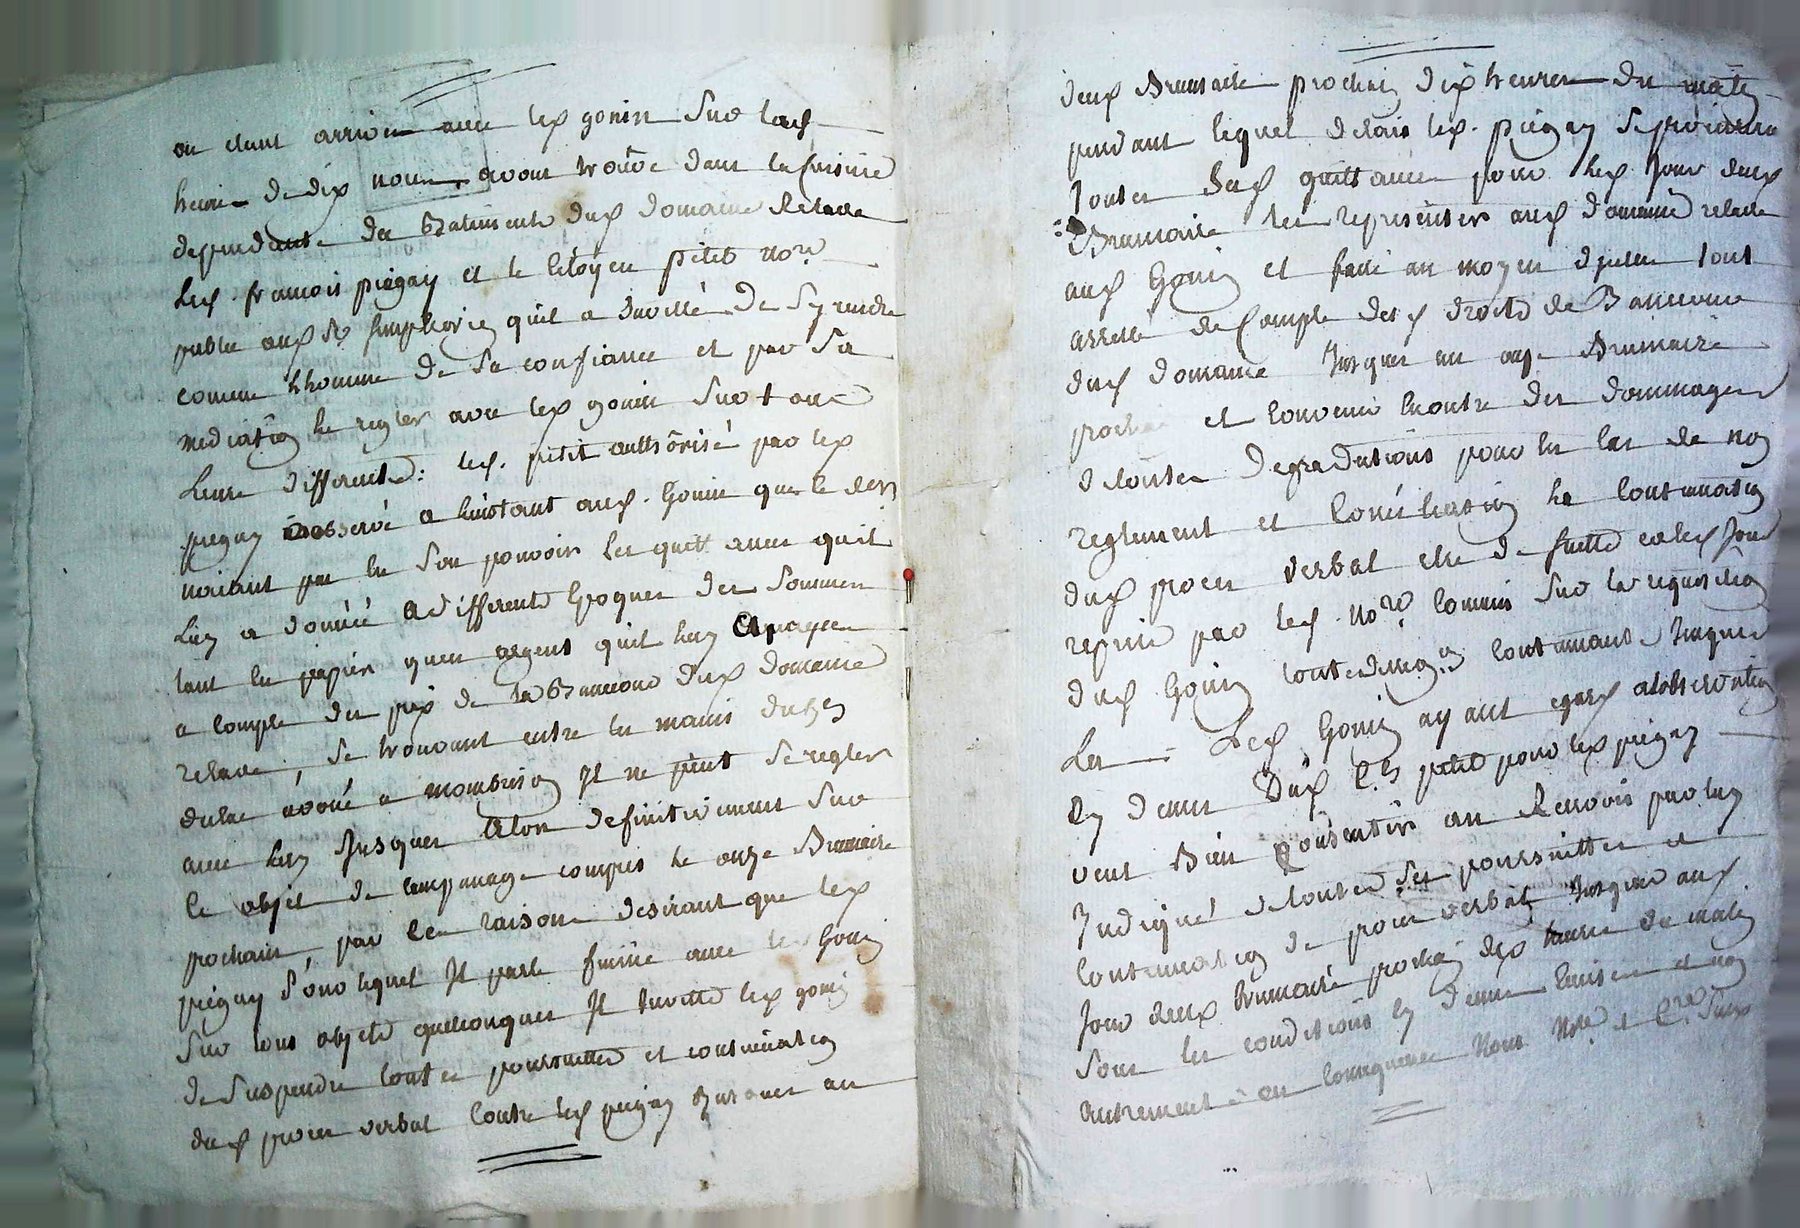 ou etant arrivés avec led gonin sur lad
heure de dix nous avons trouvé dans la Cuisine
dependante des Batiments dud domaine de
Led. francois piegay et le Citoyen petit nore
public aud St Simphorien quil a invitté de Sy rendre
comme lhomme de Sa confiance et par Sa
mediation de regler avec led gonin Sur tous
Leurs differents: led. petit authôrisé par led
piegay observé a linstant aud. Gonin que le der
naiant pas en Son pouvoir les quittances quil
Luy a donné a differents Epoques des Sommes
tant en papier quen argent quil luy a payée
a Compte du prix de dud domaine
, Se trouvant entre les mains
dulac avoué a montbrison Il ne peut Se regler
avec luy Jusques alors definitivement Sur
le objet de compris le onze Brumaire
prochain, par ces raisons desirant que led
piegay pour lequel Il parle finisse avec led Gonin
Sur tous objets quelconques Il Invitte led gonin
de Suspendre toutes poursuittes et continuation
dud proces verbal Contre led piegay Jusques au
deux Brumaire prochain dix heures du matin
pendant lequel delais led. piegay Se procurera
toutes Sesd quittances pour led Jour deux
Brumaire les representer aud domaine
aud Gonin et faire au moyen dicelles tout
arretté de Compte desd droits de
dud domaine Jusques au onze Brumaire
prochain et Convenir Encontre des dommages
et toutes degradations pour en Cas de non
reglement et Conciliation la Continuation
dud proces verbal etre de Suitte led Jour
reprise par led. nore Commis Sur la requisition
dud Gonin Continuant Jusques
Led Gonin ayant egard alobservation
Cy dessus dud Cen petit pour led piegay
veut Bien Consentir au Renvois par luy
Indiqué de toutes Ses poursuittes et
Continuation de proces verbal Jusques aud
Jour deux brumaire prochain dix heures du matin
Sous les conditions Cy dessus Enoncées et non
autrement en Consequence Nous Nore et